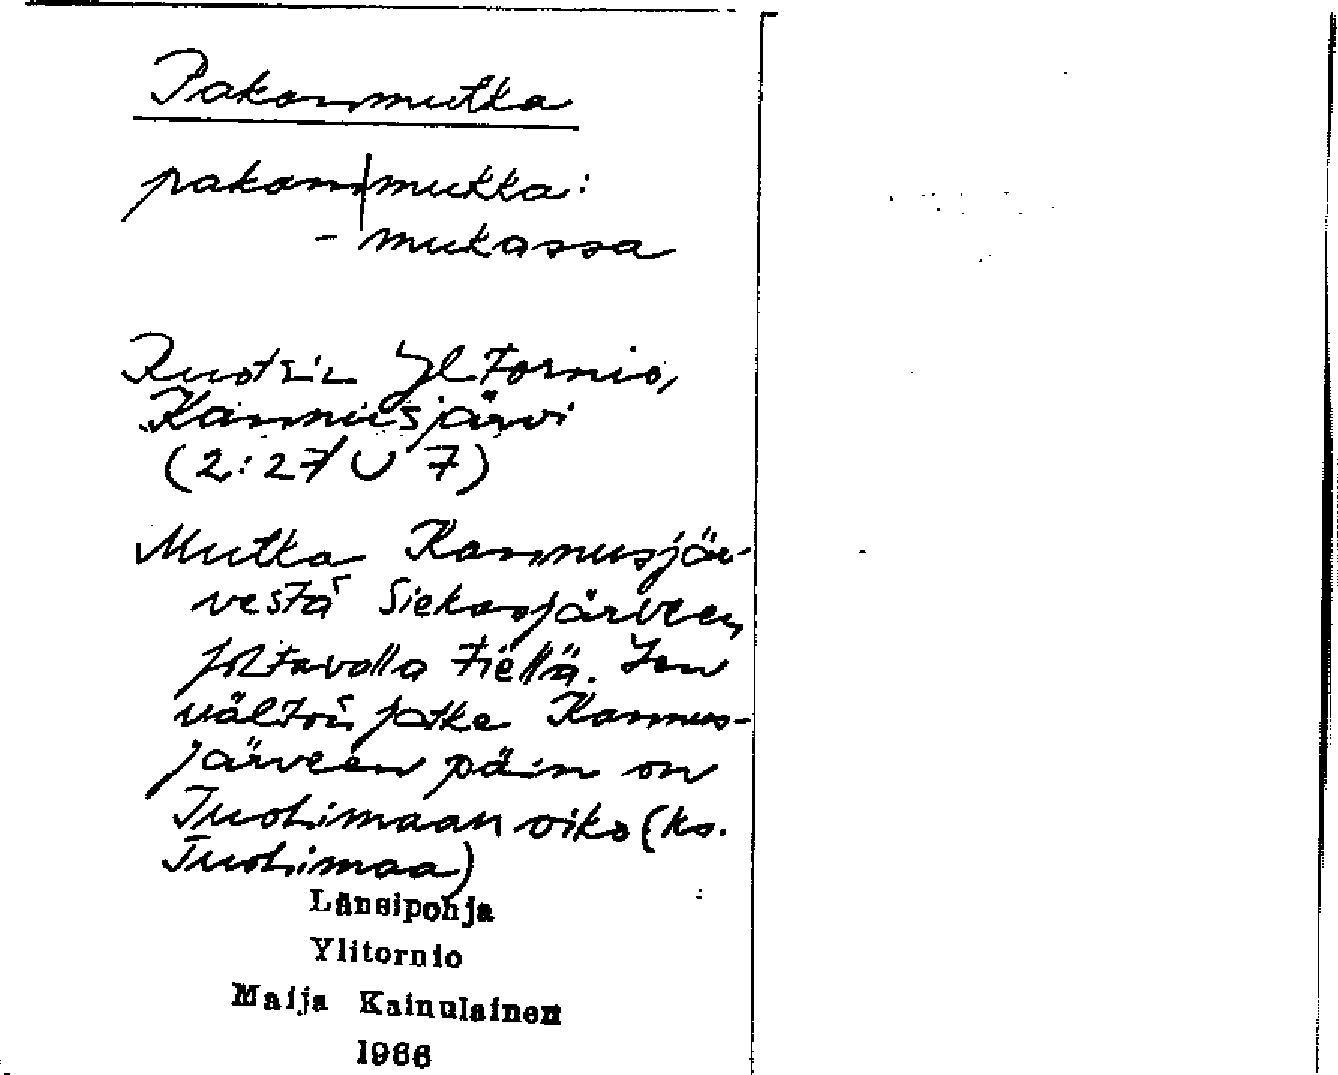 Pakanmutka
pakam|mukka:
- mukassa
Ruotsin Ylitornio,
Kannusjärvi
(2:27/U 7)
Mutka Kannusjär-
vestä Siekasjärveen
johtavalla tiellä. Sen
välitön jatke Kannus-
järveen päin on
Tuohimaan oiko (ks.
Tuohimaa)
Länsipohja
Ylitornio
Maija Kainulainen
1966